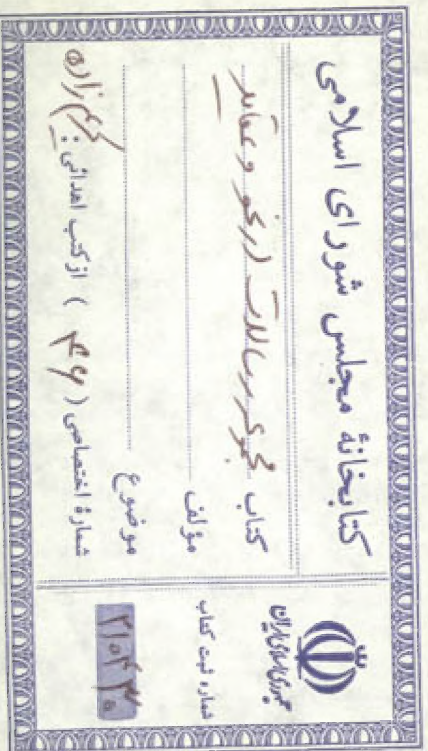 کتابخانهٔ مجلس شورای اسلامی
کتاب مجموعه رسالات در نحو و عقاید
مؤلف
موضوع
شمارهٔ اختصاصی ( ۴۶ ) از کتب اهدائی :
جمهوری اسلامی ایران
شماره ثبت کتاب
۲۱۰۴۳۰